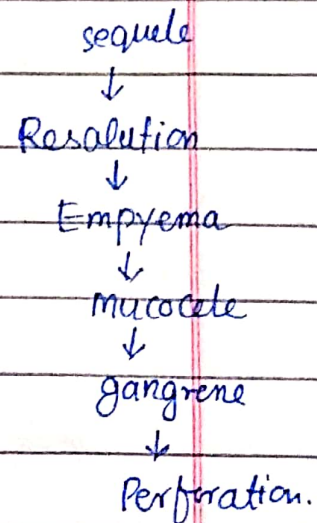 sequele
↓
Resolution
↓
Empyema
↓
mucocele
↓
gangrene
↓
Perforation.